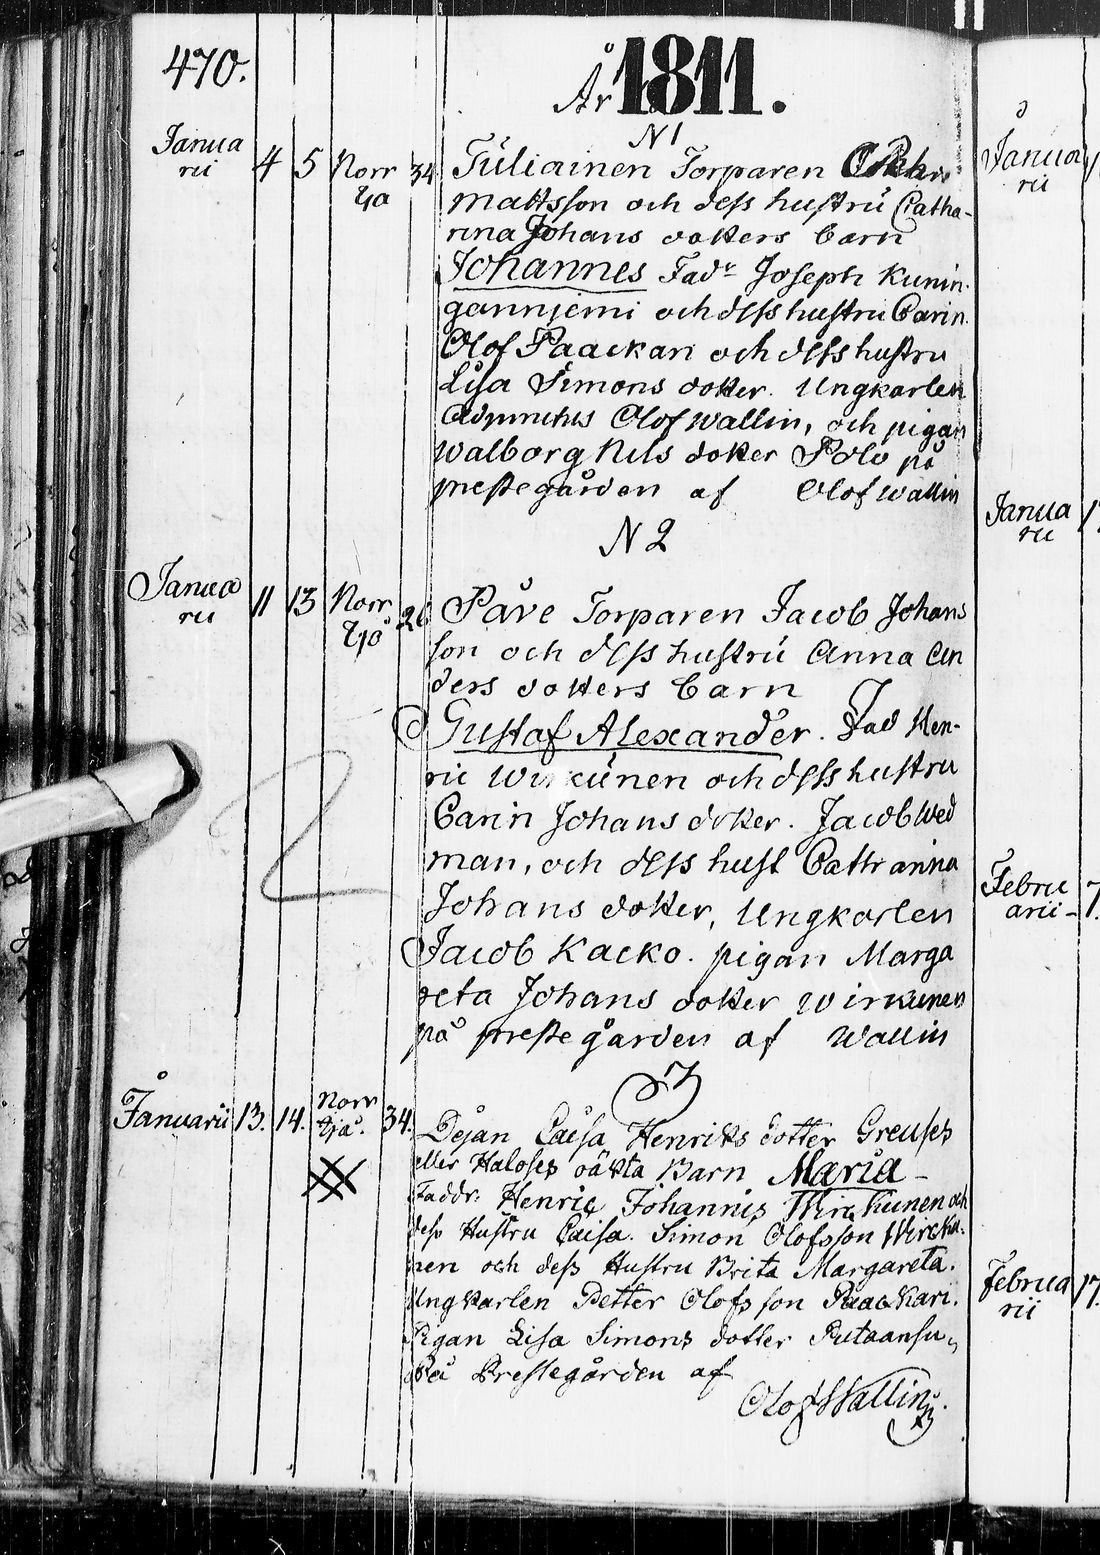 470.
År 1811.
N 1
Janua
rii 4 5 Norr
tja 34
Tuliainen Torparen
mattsson och dess hustru Catha-
rina Johans dotters barn
Johannes Fadr Joseph Kunin-
gannjemi och dess hustru Carin.
Olof Paackari och dess hustru
Lisa Simons dotter. Ungkarlen
Adjunctus Olof Wallin, och pigan
Walborg Nils dotter Polo på
prestegården af Olof Wallin
N 2
Janua
rii 11 13 Norr
tjo 26
Påve Torparen Jacob Johans
son och dess hustru Anna An
ders dotters barn
Gustaf Alexander. Fad Hen-
ric Wirkunen och dess hustru
Carin Johans dotter. Jacob Wed
man, och dess hust Catharina
Johans dotter, Ungkarlen
Jacob Kacko. pigan Marga
reta Johans dotter Wirkunen
på prestegården af Wallin
3
Januarii 13. 14. Norr
tja. 34.
Dejan Caisa Henriks dotter Greuses
eller Haloses oäkta Barn Maria
Faddr: Henric Johannis Wirckunen och
dess Hustru Caisa. Simon Olofsson Wircku-
nen och dess Hustru Brita Margareta.
Ungkarlen Petter Olofsson Paackari.
Pigan Lisa Simons dotter Putaansu,
På Prestegården af
Olof Wallin.
Janua
rii
Janua
rii
Febru
arii - 7.
Februa
rii 17.